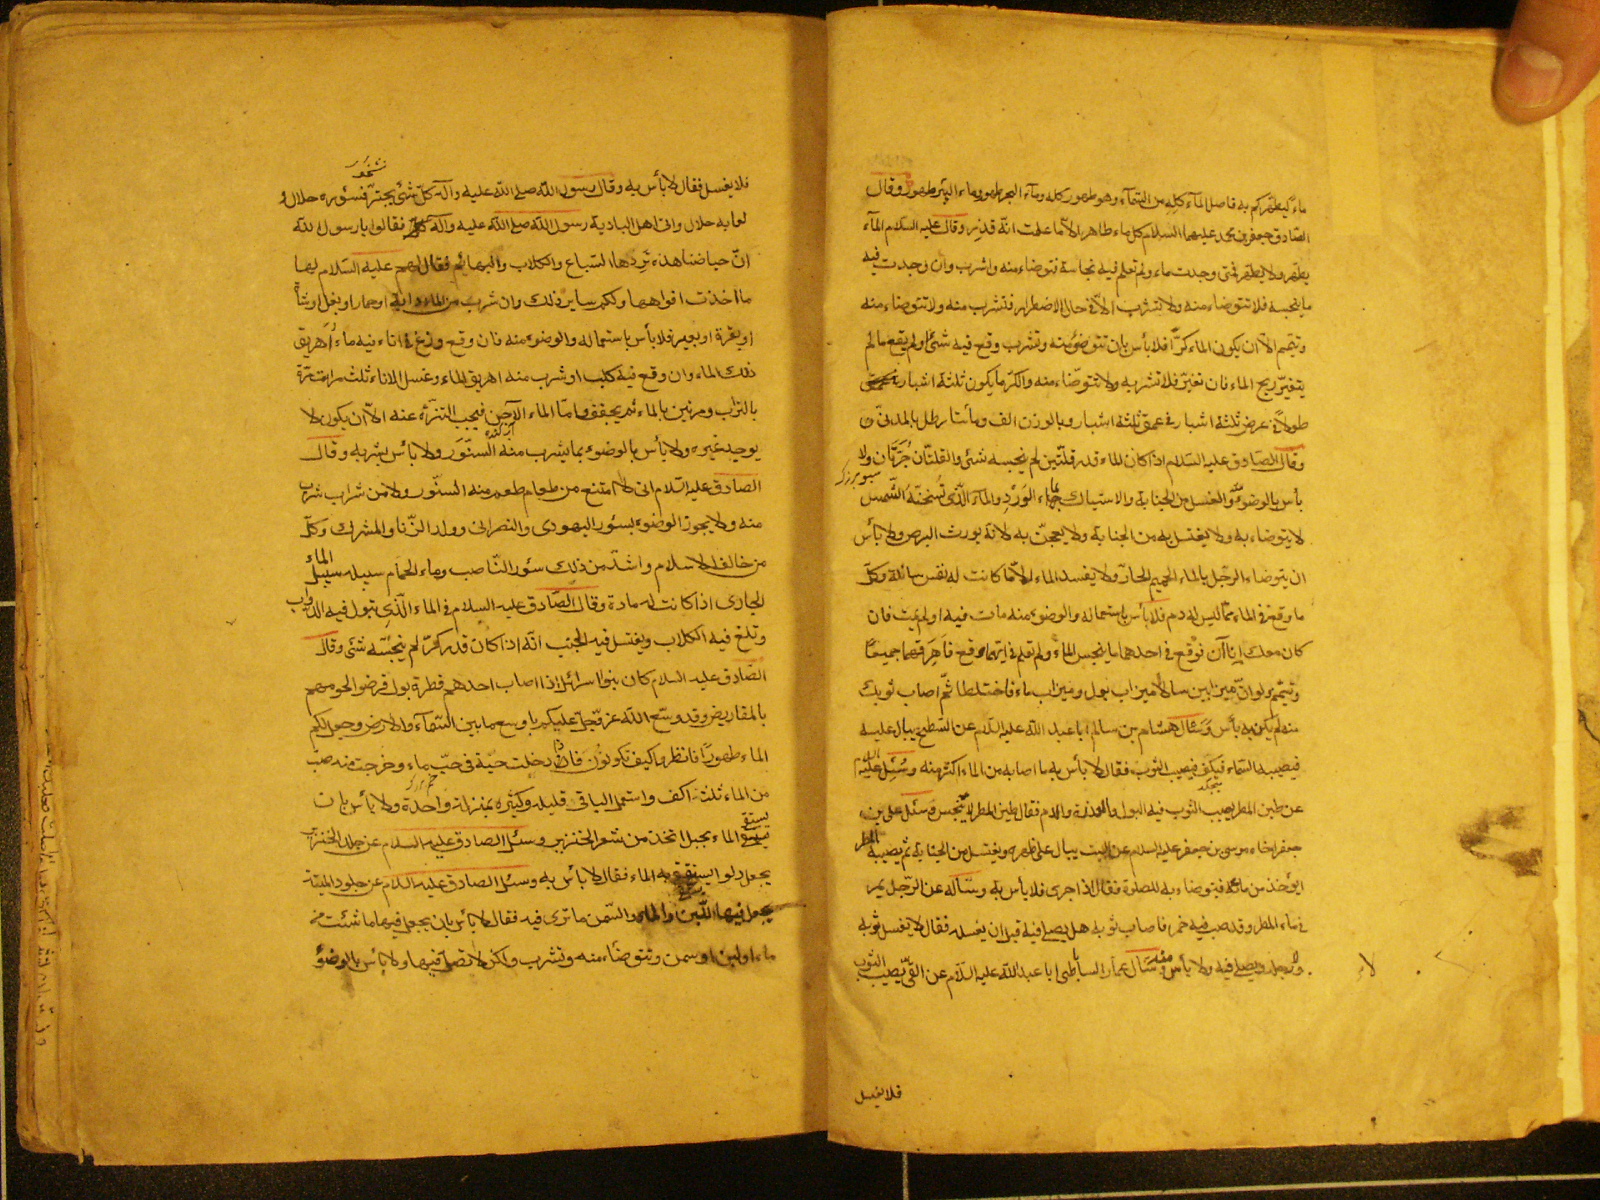 ماءً ليطهركم به فاصل الماء كله من السماء وهو طهور كله وماء البحر طهور وماء البئر طهور وقال
الصادق جعفر بن محمد عليهما السلام كل ماء طاهر الا ما علمت انه قذر وقال عليه السلام الماء
يطهر ولا يطهر فمتى وجدت ماء ولم تعلم فيه نجاسة فتوضاء منه واشرب وان وجدت فيه
ما ينجسه فلا تتوضاء منه ولا تشرب الا في حال الاضطرار فتشرب منه ولا تتوضاء منه
وتيمم الا ان يكون الماء كرّا فلا بأس بان تتوضؤ منه وتشرب وقع فيه شئ او لم يقع ما لم
يتغير ريح الماء فان تغير فلا تشربه ولا تتوضاء منه والكر ما يكون ثلثة اشبار
طولا في عرض ثلثة اشبار في عمق ثلثة اشبار وبالوزن الف ومأتا رطل بالمدني
وقال الصادق عليه السلام اذا كان الماء قدر قلتين لم ينجسه شئ والقلتان جرتان ولا
سبوى بزرك
بأس بالوضوء والغسل من الجنابة والاستياك بماء الورد والماء الذى تسخنه الشمس
لا يتوضاء به ولا يغتسل به من الجنابة ولا يعجن به لانه يورث البرص ولا بأس
ان يتوضاء الرجل بالماء الحميم الحار ولا يفسد الماء الا ما كانت له نفس سائلة وكل
ما وقع في الماء مما ليس له دم فلا بأس باستعماله والوضوء منه مات فيه او لم يمت فان
كان معك إناآن فوقع في احدهما ما ينجس الماء ولم تعلم في ايهما وقع فاهرقهما جميعا
وتيمم ولو ان ميزابين سالا ميزاب بول وميزاب ماء فاختلطا ثم اصاب ثوبك
منه لم يكن به بأس وسئال هشام بن سالم ابا عبد الله عليه السلام عن السطح يبال عليه
فيصيبه السماء فيكف فيصيب الثوب فقال لا بأس به ما اصابه من الماء اكثر منه وسئل عليه السلام
عن طين المطر يصيب الثوب فيه البول والعذرة والدم فقال طين المطر لا ينجس وسئل علي بن
جعفر اخاه موسى بن جعفر عليه السلام عن البيت يبال على ظهره ويغتسل من الجنابة ثم يصيبه المطر
ايؤخذ من مائه فيتوضاء به للصلوة فقال اذا جرى فلا بأس به وسأله عن الرجل يمر
في ماء المطر وقد صب فيه خمر فاصاب ثوبه هل يصلي فيه قبل ان يغسله فقال لا يغسل ثوبه
ورجله ويصلي فيه ولا بأس وسئال عمار الساباطي ابا عبد الله عليه السلام عن القئ يصيب الثوب
فلا يغسل
فلا يغسل فقال لا بأس به وقال رسول الله صلى الله عليه وآله كل شئ يجتر فسؤره حلال و
لعابه حلال واتى اهل البادية رسول الله صلى الله عليه وآله فقالوا يا رسول الله
ان حياضنا هذه تردها السباع والكلاب والبهائم فقال لهم عليه السلام لها
ما اخذت افواهها ولكم ساير ذلك وان شرب من الماء دابة او حمار او بغل او شاة
او بقرة او بعير فلا بأس باستعماله والوضوء منه فان وقع وزغ في اناء فيه ماء أُهريق
ذلك الماء وان وقع فيه كلب او شرب منه اهريق الماء وغسل الاناء ثلث مرات مرة
بالتراب ومرتين بالماء ثم يجفف واما الماء الآجن فيجب التنزه عنه الا ان يكون لا
آب كنده
يوجد غيره ولا بأس بالوضوء بما يشرب منه السنّور ولا بأس بشربه وقال
الصادق عليه السلام انى لا امتنع من طعام طعم منه السنور ولا من شراب شرب
منه ولا يجوز الوضوء بسئور اليهودى والنصرانى وولد الزنا والمشرك وكل
من خالف الاسلام واشد من ذلك سئور الناصب وماء الحمام سبيله سبيل الماء
الجارى اذا كانت له مادة وقال الصادق عليه السلام في الماء الذى تبول فيه الدواب
وتلغ فيه الكلاب ويغتسل فيه الجنب انه اذا كان قدر كر لم ينجسه شئ وقال
الصادق عليه السلام كان بنوا اسرائيل اذا اصاب احدهم قطرة بول قرضوا لحومهم
بالمقاريض وقد وسع الله عز وجل عليكم باوسع ما بين السماء والارض وجعل لكم
الماء طهورا فانظروا كيف تكونون فان دخلت حية في حب ماء وخرجت منه صب
خم بزرك
من الماء ثلثة اكف واستعمل الباقي وقليله وكثيره بمنزلة واحدة ولا بأس بان
يستقى الماء بحبل اتخذ من شعر الخنزير وسئل الصادق عليه السلام عن جلد الخنزير
يجعل دلوا يستقى به الماء فقال لا بأس به وسئل الصادق عليه السلام عن جلود الميتة
يجعل فيها اللبن والماء والسمن ما ترى فيه فقال لا بأس بان يجعل فيها ما شئت من
ماء او لبن او سمن وتتوضاء منه وتشرب ولكن لا تصل فيها ولا بأس بالوضوء